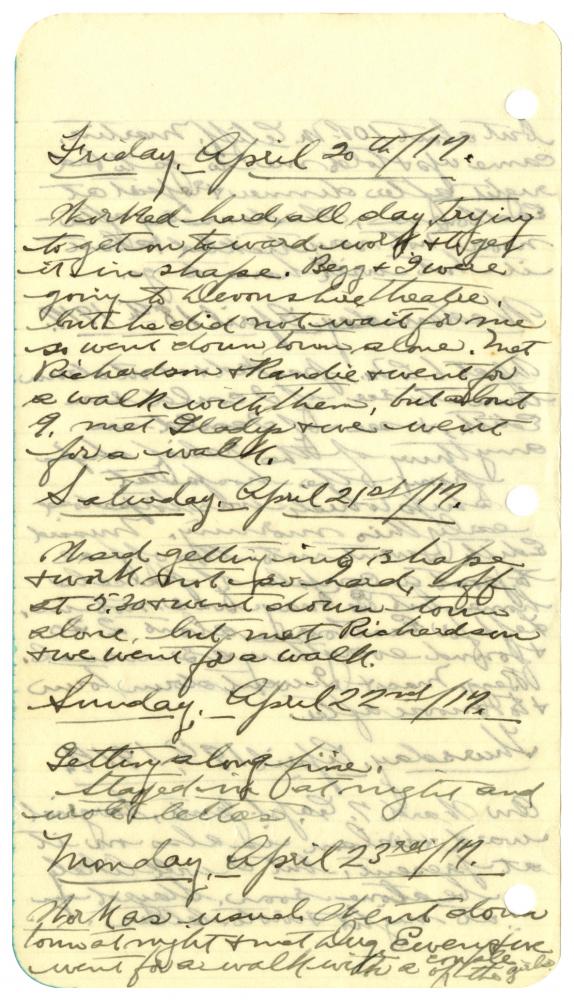 Friday, April 20th/17.
Worked hard all day, trying
to get on to ward work & to get
it in shape. Begg & I were
going to Devonshire theatre,
but he did not wait for me
so went down town alone. Met
Richardson & Randie & went for
a walk with them, but about
9. met Gladys & we went
for a walk.
Saturday, April 21st/17.
Ward getting into shape
& work not so hard, off
at 5.30 & went down town
alone, but met Richardson
& we went for a walk.
Sunday, April 22nd/17.
Getting along fine.
Stayed in at night and
wrote letters.
Monday, April 23rd/17.
Work as usual. Went down
town at night & met Dug. Ewen & we
went for a walk with a couple
of the girls.